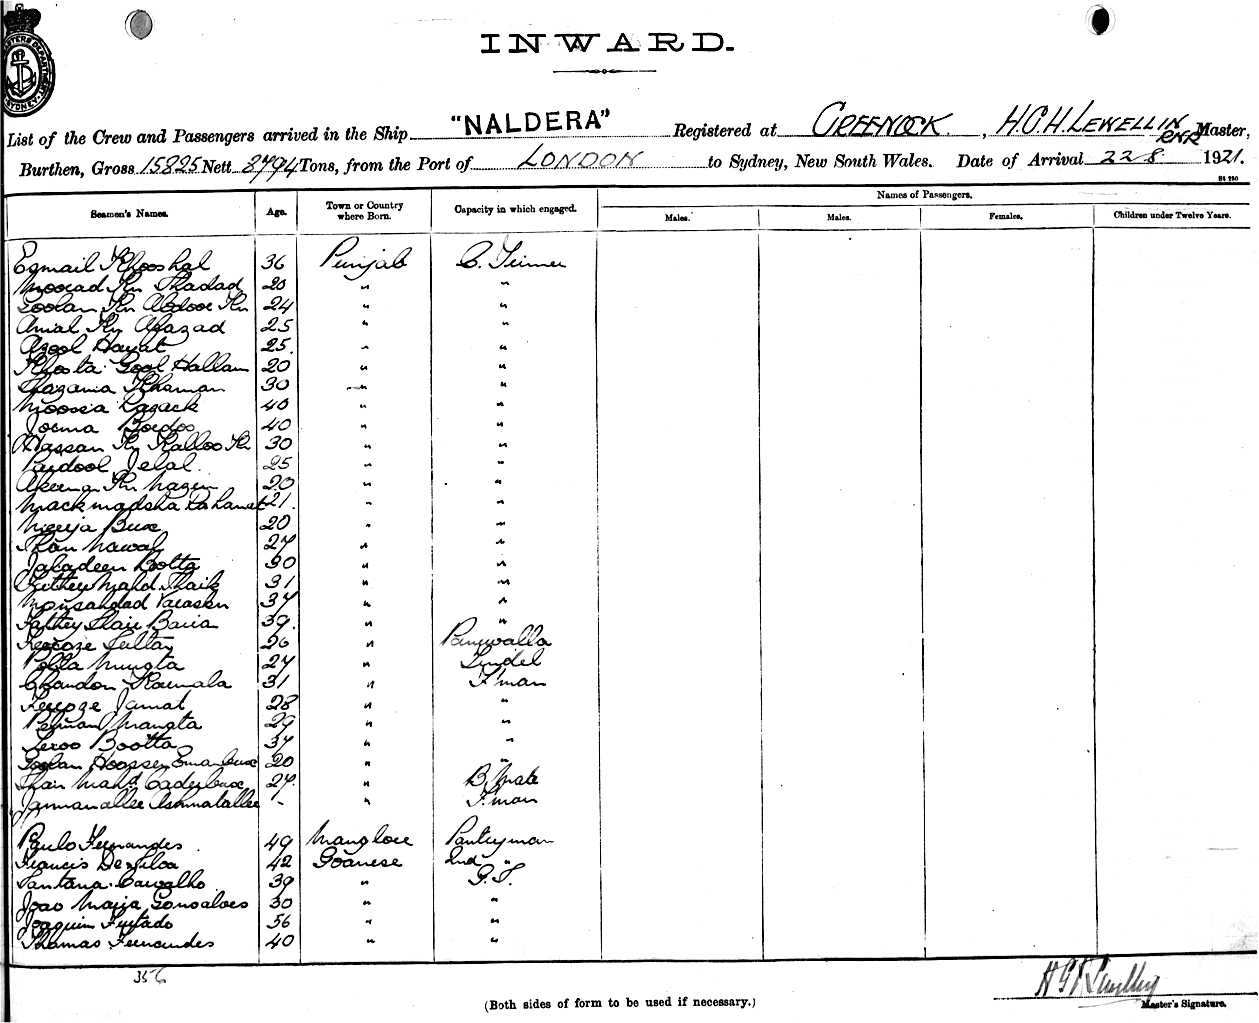 INWARD.
List of the Crew and Passengers arrived in the Ship "NALDERA" Registered at GREENOCK, H.C.H. LEWELLIN RNR Master,
Burthen, Gross 15825 Nett 8794 Tons, from the Port of LONDON to Sydney, New South Wales. Date of Arrival 22 8 1921.
Seamen's Names. Age. Town or Country where Born. Capacity in which engaged. Names of Passengers.
Males. Males. Females. Children under Twelve Years.
Esmail Khooshal 36 Punjab C. Trimmer
Moorad Kn Shadad 20 " "
Goolam Kn Abdool Kn 24 " "
Amal Kn Afazad 25 " "
Azool Hayat 25. " "
Khosta Gool Hallam 20 " "
Khaman 30 " "
Moosa Razack 40 " "
Joema 40 " "
Hassan Kn Kalloo Kn 30 " "
Jelal. 25 " "
Kn 20 " "
Mackmadsha Rahamat 21. " "
Bux 20 " "
Khan Nawab 27 " "
Jaladeen Botta 30 " "
Fatteh Mahd Shaik 31 " "
37 " "
Fathey Shair Baria 39. " "
Feroze Sultan 26 " Paniwalla
Polla Mungta 27 " Tindel
Chandon 31 " F'man
Feroze Jamal 28 " "
Mangta 29 " "
Bootta 37 " "
Goolam Hoossen Emambux 20 " "
Khair Mahd Caderbux 27. " B. Mate
Jammanallee Ashmatallee - " F'man
Paulo Fernandes 49 Manglore Pantryman
Francis De Silva 42 Goanese 2nd "
Santana Carvalho 39 " G.S.
Joao Maria Gonsalves 30 " "
Joaquim Furtado 56 " "
Thomas Fernandes 40 " "
356
(Both sides of form to be used if necessary.)
Master's Signature.